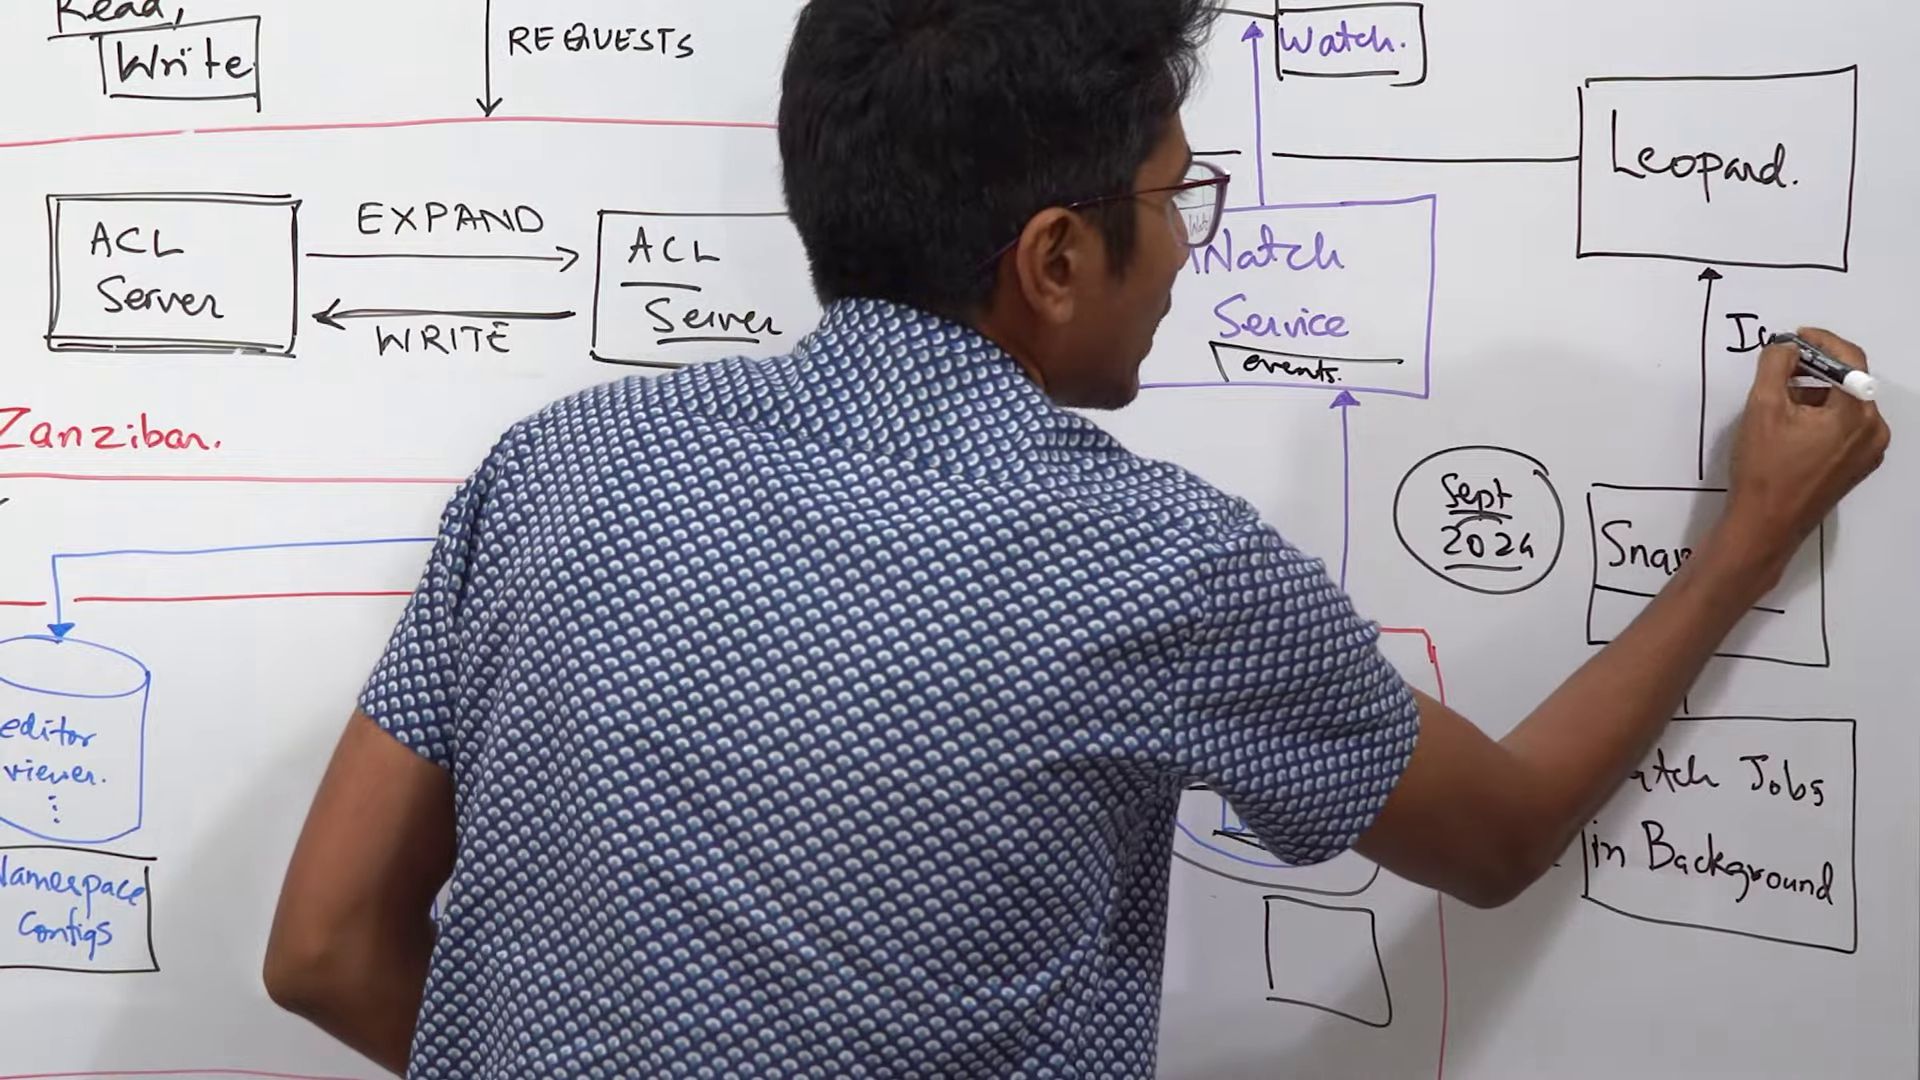 Read,
Write
REQUESTS
Watch.
Leopard.
ACL
Server
EXPAND
WRITE
ACL
Server
Watch
Service
events.
Zanzibar.
Sept
2024
editor
viewer.
Namespace
Configs
Jobs
in Background